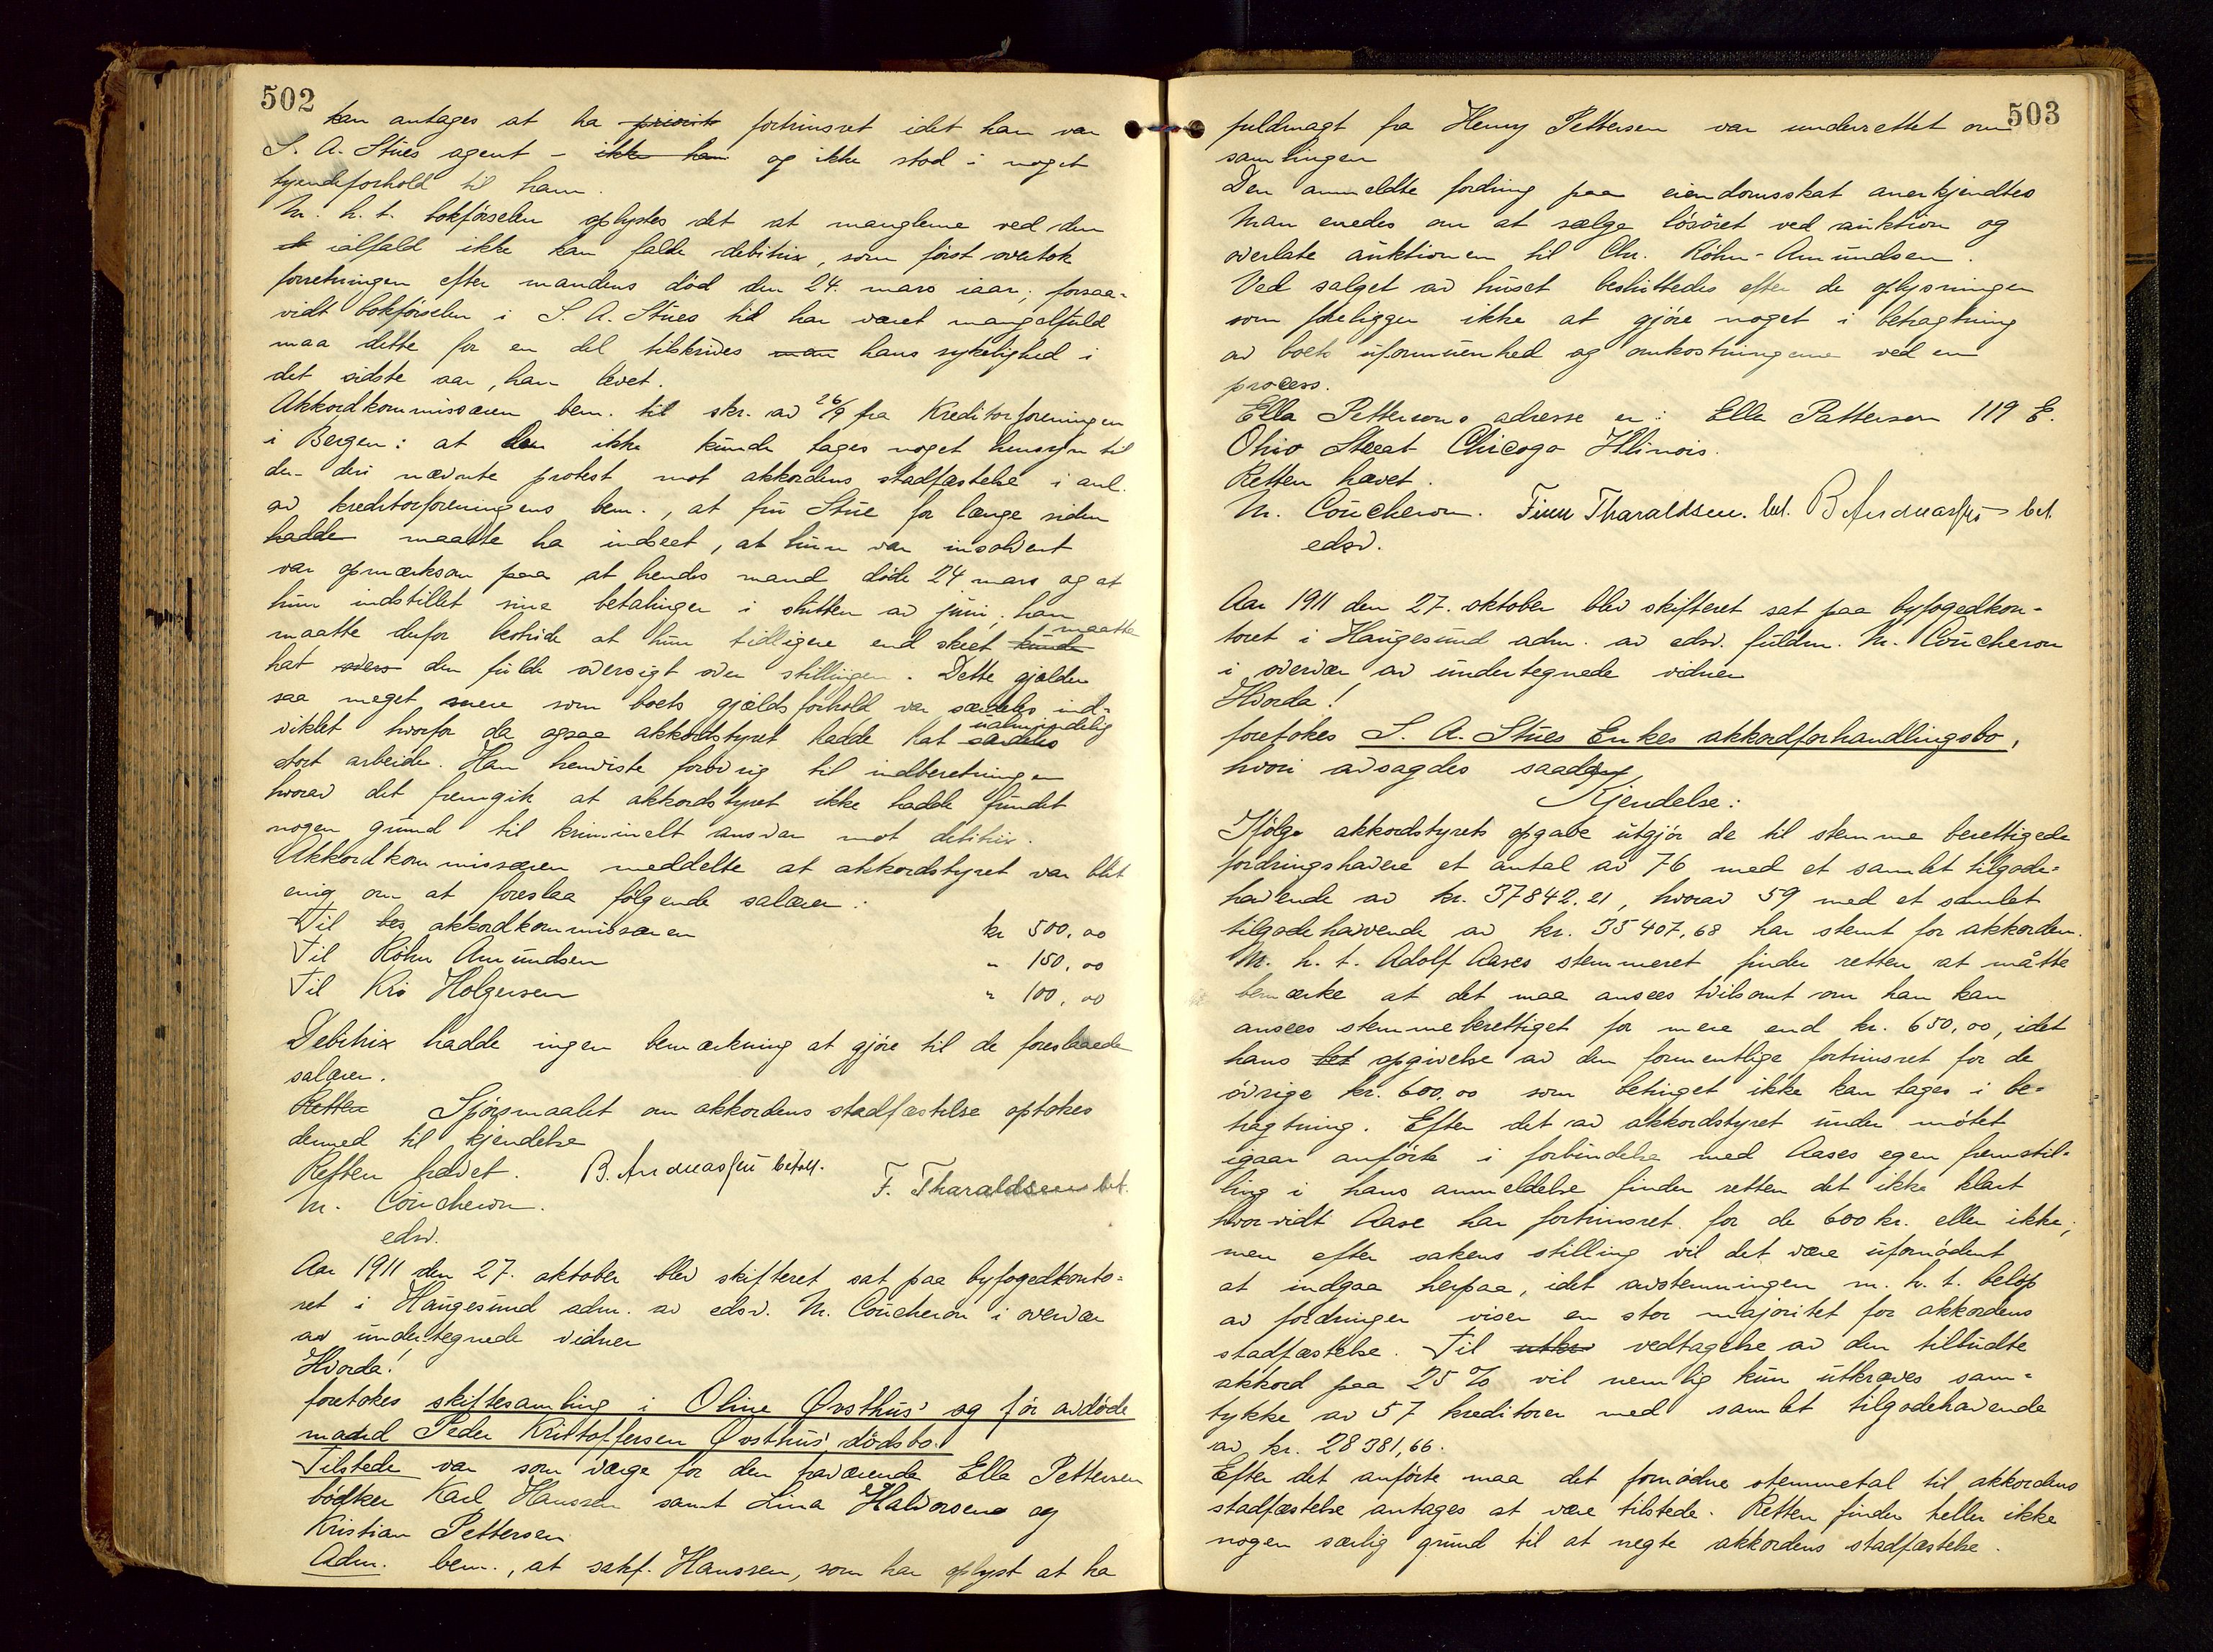 502
kan antages at ha priorit fortrinsret idet han var
S. A. Stues agent - ikke han og ikke stod i noget
tjendeforhold til ham.
M. h. t. bokførselen oplystes det at manglerne ved den
ialfald ikke kan falde debitrix, som først overtok
forretningen efter mandens død den 24. mars iaar; forsaa-
vidt bokførselen i S. A. Stues tid har været mangelfuld
maa dette for en del tilskrives man hans sykelighed i
det sidste aar, han levet.
Akkordkommissæren bem. til skr. av 26/9 fra Kreditorforeningen
i Bergen: at der ikke kunde tages noget hensyn til
den deri nævnte protest mot akkordens stadfæstelse i anl.
av kreditorforeningens bem., at fru Stue for længe siden
hadde maatte ha indseet, at hun var insolvent
var opmerksom paa at hendes mand døde 24 mars og at
hun indstillet sine betalinger i slutten av juni, han
maatte derfor bestride at hun tidligere end skeet kunde maatte
hat overs den fulde oversigt over stillingen. Dette gjælder
saa meget mere som boets gjældsforhold var særdeles ind-
viklet hvorfor da ogsaa akkordstyret hadde hat særdeles ualmindelig
stort arbeide. Han henviste forøvrig til indberetningen
hvorav det fremgik at akkordstyret ikke hadde fundet
nogen grund til kriminelt ansvar mot debitrix.
Akkordkommissæren meddelte at akkordstyret var blit
enig om at foreslaa følgende salærer:
Til bes akkordkommissæren kr 500,00
Til Röhn Amundsen " 150,00
Til Kris Holgersen " 100,00
Debitrix hadde ingen bemærkning at gjøre til de foreslaaede
salærer.
Retten Spørsmaalet om akkordens stadfæstelse optokes
dermed til kjendelse
Retten hævet. B. Andreassen betalt. F. Tharaldsen bet.
M. Coucheron.
edsv.
Aar 1911 den 27. oktober blev skifteret sat paa byfogedkonto-
ret i Haugesund adm. av edsv. M. Coucheron i overvær
av undertegnede vidner
Hvorda!
foretokes skiftesamling i Oline Øvsthus' og før avdøde
mand Peder Kristoffersen Øvsthus' dødsbo.
Tilstede var som værge for den fraværende Ella Pettersen
bødker Karl Hanssen samt Lina Halvorsen og
Kristian Pettersen
Adm. bem., at sakf. Hanssen, som har oplyst at ha
503
fuldmagt fra Henry Pettersen var underrettet om
samlingen
Den anmeldte fordring paa eiendomsskat anerkjendtes
Man enedes om at sælge løsøret ved auktion og
overlate auktionen til Chr. Röhn-Amundsen.
Ved salget av huset besluttedes efter de oplysninger
som foreligger ikke at gjøre noget i betragtning
av boets uformuenhed og omkostningerne ved en
process.
Ella Pettersens adresse er: Ella Patterson 119 E.
Ohio Street Chicago Illinois.
Retten hævet.
M. Coucheron. Finn Tharaldsen. bet. B Andreassen bet.
edsv.
Aar 1911 den 27. oktober blev skifteret sat paa byfogedkon-
toret i Haugesund adm. av edsv. fuldm. M. Coucheron
i overvær av undertegnede vidner
Hvorda!
foretokes S. A. Stues Enkes akkordforhandlingsbo,
hvori avsagdes saadan
Kjendelse:
Ifølge akkordstyrets opgave utgjør de til stemme berettigede
fordringshavere et antal av 76 med et samlet tilgode-
havende av kr. 37842.21, hvorav 59 med et samlet
tilgodehavende av kr. 35407,68 har stemt for akkorden.
M. h. t. Adolf Aases stemmeret finder retten at måtte
bemærke at det maa ansees tvilsomt om han kan
ansees stemmeberettiget for mere end kr. 650,00, idet
hans bet opgivelse av den formentlige fortrinsret for de
øvrige kr. 600,00 som betinget ikke kan tages i be-
tragtning. Efter det av akkordstyret under møtet
igaar anførte i forbindelse med Aases egen fremstil-
ling i hans anmeldelse finder retten det ikke klart
hvorvidt Aase har fortrinsret for de 600 kr. eller ikke;
men efter sakens stilling vil det være ufornødent
at indgaa herpaa, idet avstemningen m. h. t. beløp
av fordringer viser en stor majoritet for akkordens
stadfæstelse. Til utkr vedtagelse av den tilbudte
akkord paa 25 % vil nemlig kun utkræves sam-
tykke av 57 kreditorer med samlet tilgodehavende
av kr. 28381,66.
Efter det anførte maa det fornødne stemmetal til akkordens
stadfæstelse antages at være tilstede. Retten finder heller ikke
nogen særlig grund til at negte akkordens stadfæstelse.